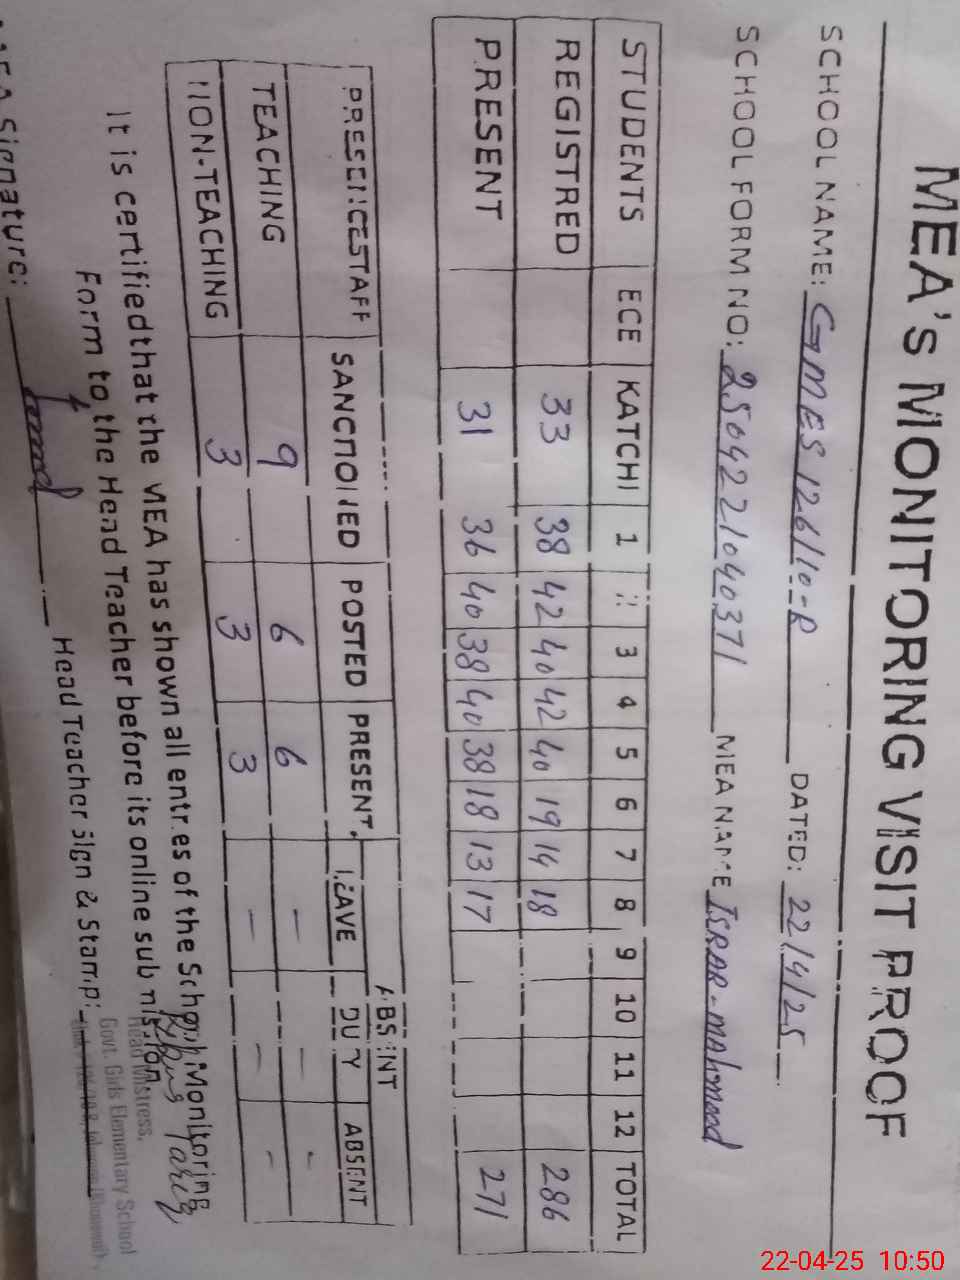 MEA's MONITORING VISIT PROOF
SCHOOL NAME: GMES 126/10-R DATED: 22/4/25
SCHOOL FORM NO: 2504221040371 MEA NAME ISRAR-mahmood
STUDENTS ECE KATCHI 1 2 3 4 5 6 7 8 9 10 11 12 TOTAL
REGISTRED 33 38 42 40 42 40 19 14 18 286
PRESENT 31 36 40 38 40 38 18 13 17 271
PRESENCE STAFF SANCTIONED POSTED PRESENT ABSENT
LEAVE DUTY ABSENT
TEACHING 9 6 6 - - -
NON-TEACHING 3 3 3 - - -
It is certified that the MEA has shown all entries of the School Monitoring
Form to the Head Teacher before its online submission.
MEA Signature: Head Teacher Sign & Stamp:
Head Mistress,
Govt. Girls Elementary School
22-04-25 10:50